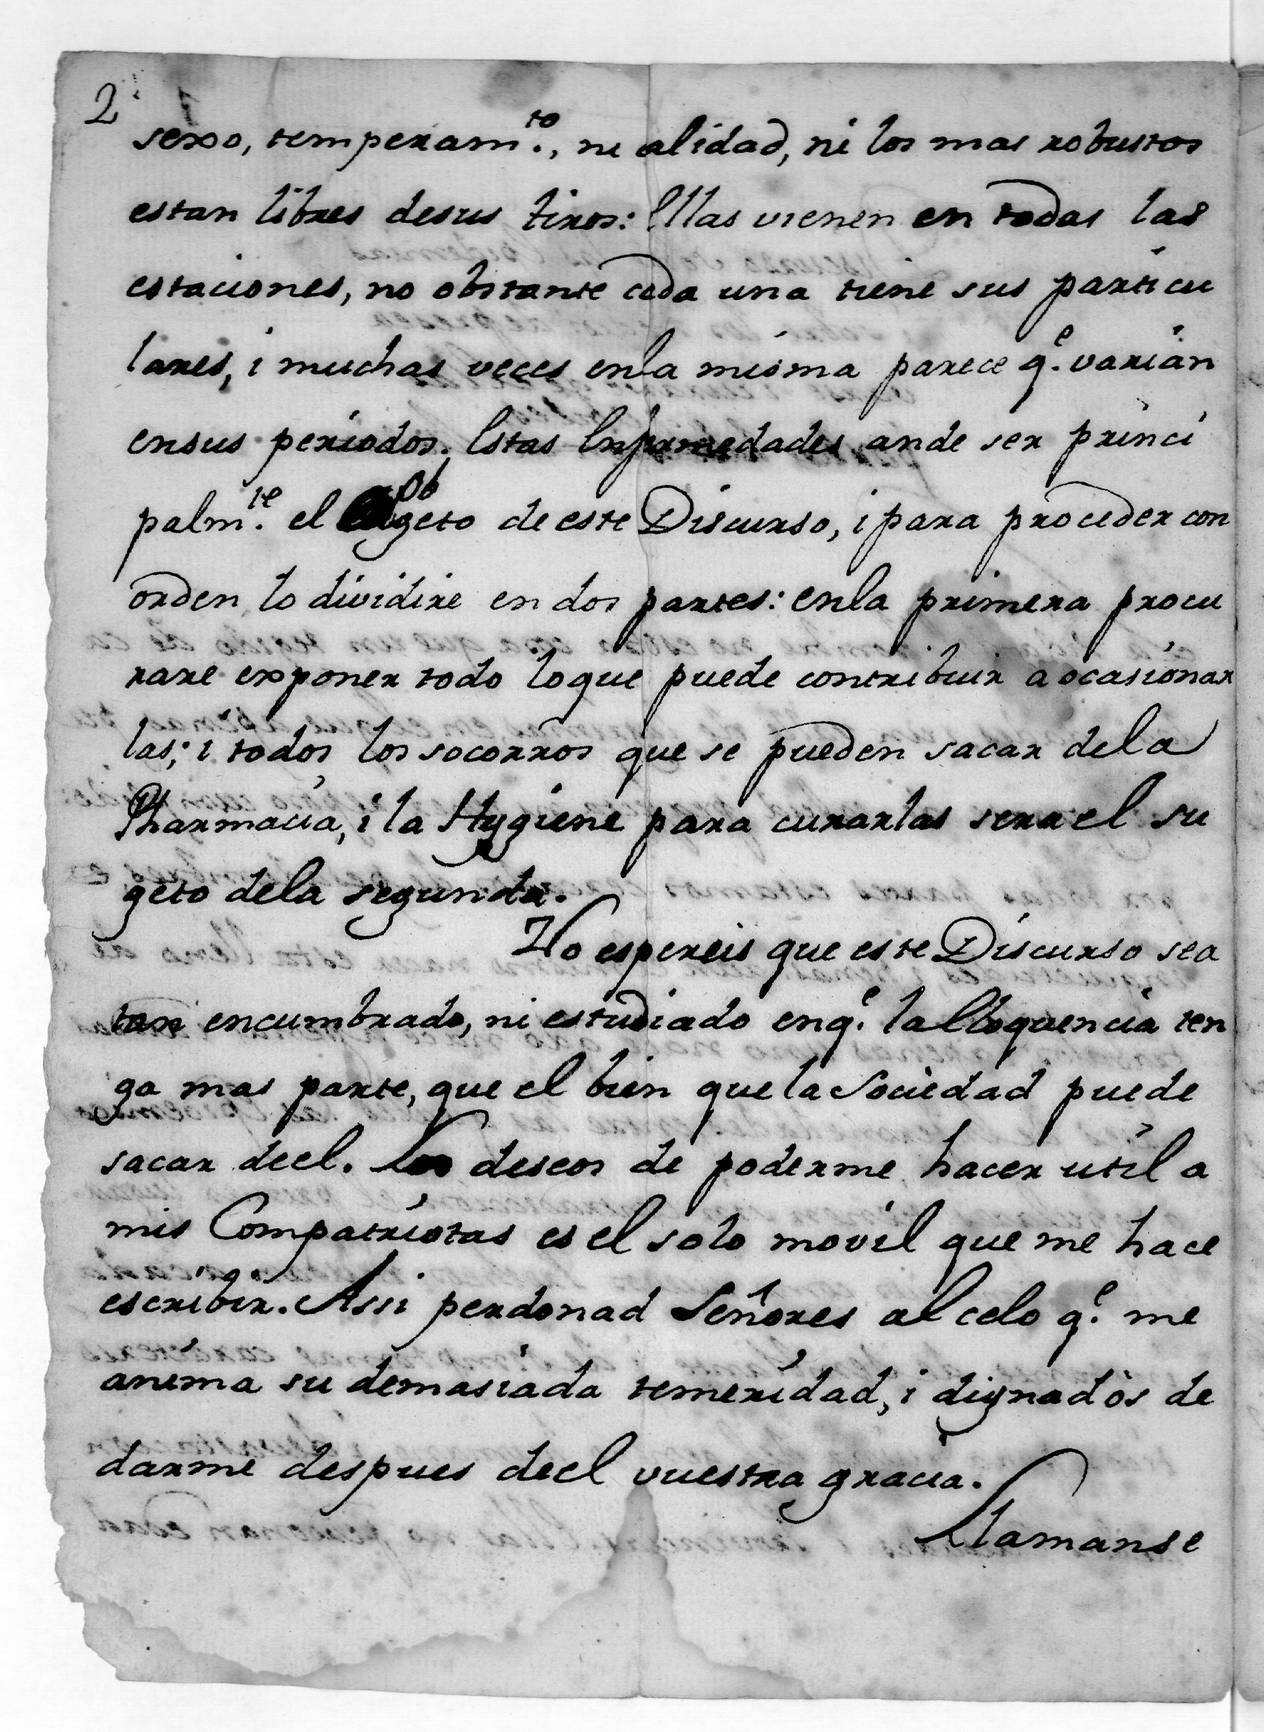 2
sexo, temperam.to, ni calidad, ni los mas robustos
estan libres desus tiros: Ellas vienen en todas las
estaciones, no obstante cada una tiene sus particu
lares, i muchas veces enla misma parece q.e varian
ensus periodos. Estas Enfermedades ande ser princi
palm.te el obgeto de este Discurso, i para proceder con
orden lo dividire en dos partes: enla primera procu
rare exponer todo loque puede contribuir a ocasionar
las; i todos los socorros que se pueden sacar dela
Pharmacia, i la Hygiene para curarlas sera el su
geto dela segunda.
No espereis que este Discurso sea
tan encumbrado, ni estudiado enq.e la Eloquencia ten
ga mas parte, que el bien que la Sociedad puede
sacar deel. Los deseos de poderme hacer util a
mis Compatriotas es el solo movil que me hace
escribir. Assi perdonad Señores al celo q.e me
anima su demasiada temeridad, i dignadòs de
darme despues deel vuestra gracia.
Llamanse